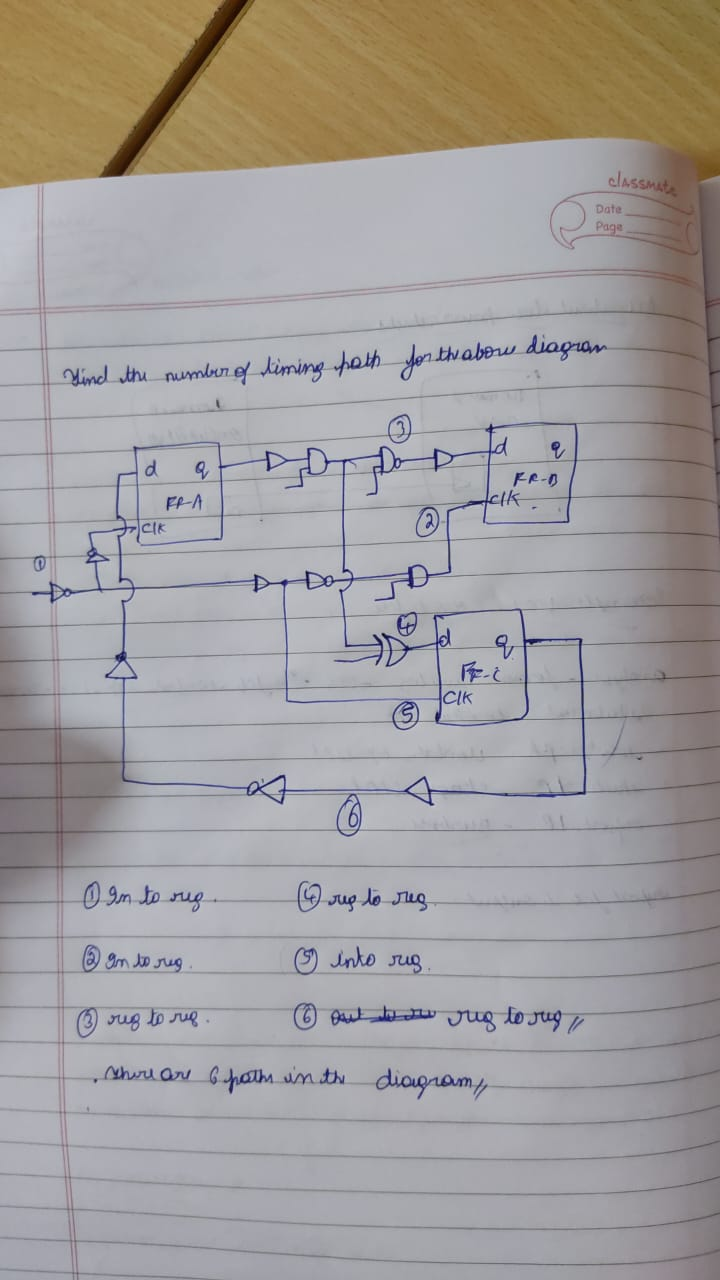 classmate
Date
Page
Find the number of timing path for the above diagram
③
d q
FF-A
Clk
d q
FF-B
clk
②
①
④
d q
FF-C
Clk
⑤
⑥
① In to reg.
④ reg to reg.
② In to reg.
⑤ into reg.
③ reg to reg.
⑥ reg to reg //
. there are 6 paths in the diagram //